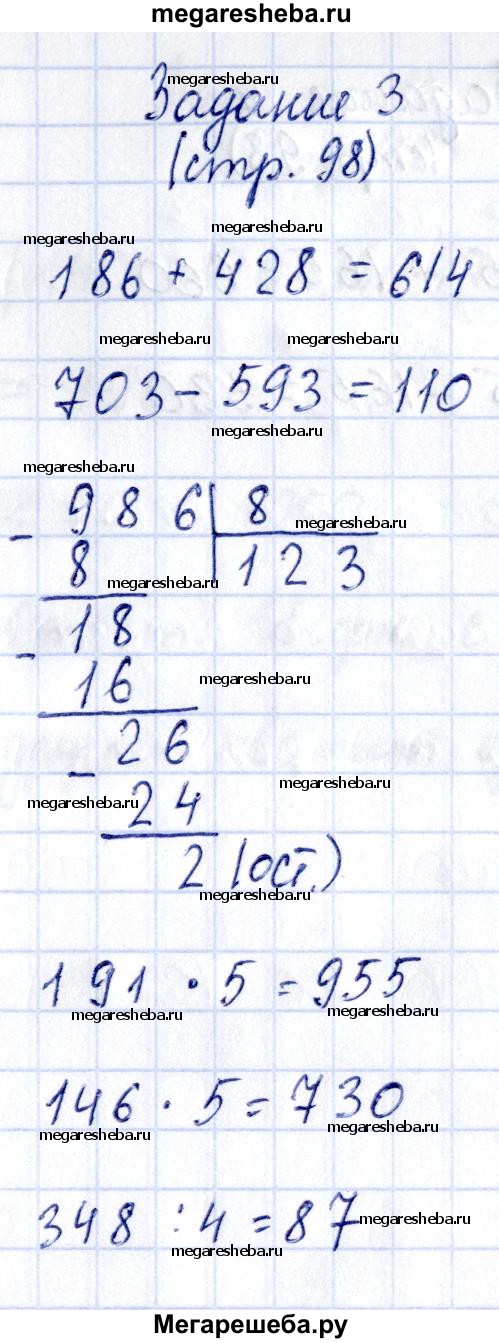 megaresheba.ru
megaresheba.ru
Задание 3
(стр. 98)
megaresheba.ru
megaresheba.ru
186 + 428 = 614
megaresheba.ru megaresheba.ru
703 - 593 = 110
megaresheba.ru
megaresheba.ru
- 986 | 8
megaresheba.ru
8 123
megaresheba.ru
- 18
16
megaresheba.ru
- 26
megaresheba.ru
24
megaresheba.ru
2 (ост.)
megaresheba.ru
191 · 5 = 955
megaresheba.ru megaresheba.ru
146 · 5 = 730
megaresheba.ru megaresheba.ru
348 : 4 = 87
megaresheba.ru
megaresheba.ru
Мегарешеба.ру